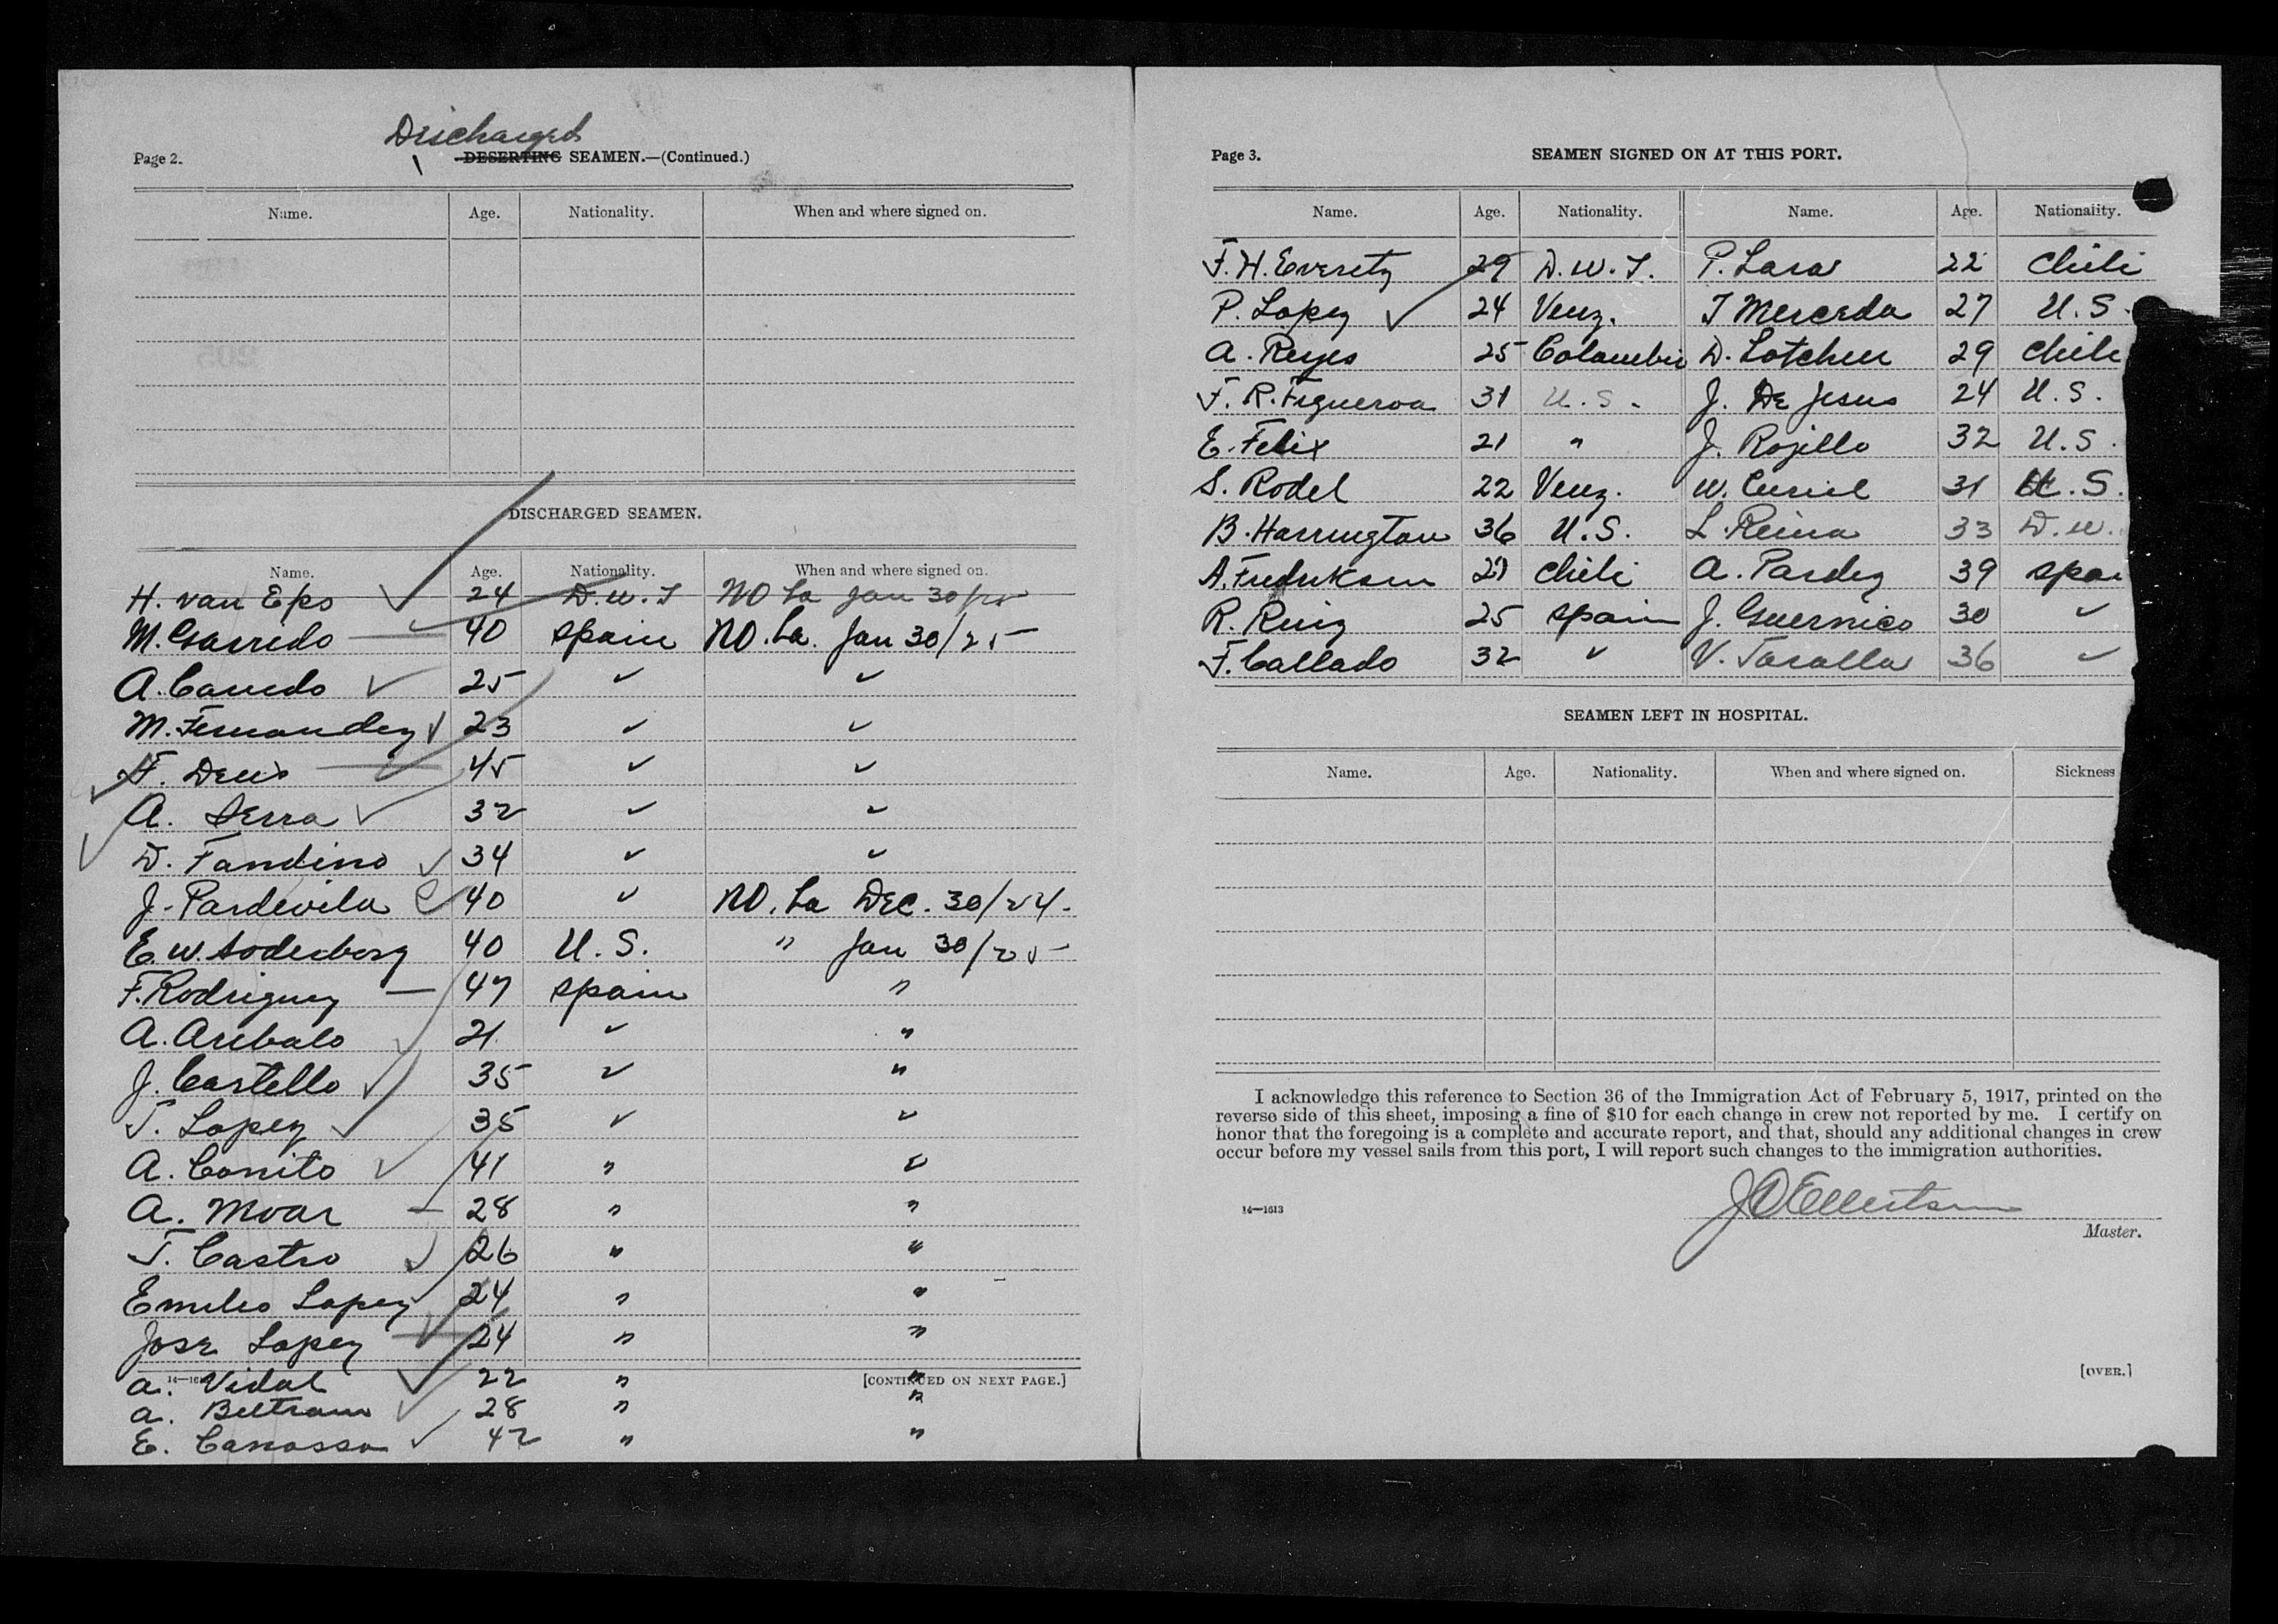 Discharged
Page 2. DESERTING SEAMEN.—(Continued.)
Name. Age. Nationality. When and where signed on.
DISCHARGED SEAMEN.
Name. Age. Nationality. When and where signed on.
H. van Eps 24 D.W.I NO La Jan 30/25
M. Garrido 40 Spain NO. La. Jan 30/25
A. Canedo ✓ 25 ✓ ✓
M. Fernandez ✓ 23 ✓ ✓
F. Deus 45 ✓ ✓
A. Serra ✓ 32 ✓ ✓
D. Fandino ✓ 34 ✓ ✓
J. Pardevila 40 ✓ NO. La DEC. 30/24.
E. W. Soderborg 40 U.S. " Jan 30/25
F. Rodriguez — 47 Spain "
A. Arebalo 21. ✓ "
J. Castello ✓ 35 ✓ "
T. Lopez ✓ 35 ✓ ✓
A. Conito ✓ 41 " ✓
A. Moar — 28 " "
T. Castro ✓ 26 " "
Emilio Lopez 24 " "
Jose Lopez 24 " "
a. Vidal ✓ 22 " "
14— [CONTINUED ON NEXT PAGE.]
a. Beltram ✓ 28 " "
E. Canossa ✓ 42 " "
Page 3. SEAMEN SIGNED ON AT THIS PORT.
Name. Age. Nationality. Name. Age. Nationality.
F. H. Evertz 29 D.W.I. P. Lara 22 Chili
P. Lopez ✓ 24 Venz. T Merceda 27 U.S.
A. Reyes 25 Columbia D. Lotchen 29 Chile
F. R. Figueroa 31 U.S. J. De Jesus 24 U.S.
E. Felix 21 " J. Rojillo 32 U.S.
S. Rodel 22 Venz. W. Curiel 31 U.S.
B. Harrington 36 U.S. L. Reina 33 D.W.
A. Fredriksen 27 Chili A. Pardez 39 Spai
R. Ruiz 25 Spain J. Guernico 30 ✓
F. Callado 32 ✓ V. Taralla 36 ✓
SEAMEN LEFT IN HOSPITAL.
Name. Age. Nationality. When and where signed on. Sickness
I acknowledge this reference to Section 36 of the Immigration Act of February 5, 1917, printed on the
reverse side of this sheet, imposing a fine of $10 for each change in crew not reported by me. I certify on
honor that the foregoing is a complete and accurate report, and that, should any additional changes in crew
occur before my vessel sails from this port, I will report such changes to the immigration authorities.
J O Ellertsen
14—1613
Master.
[OVER.]